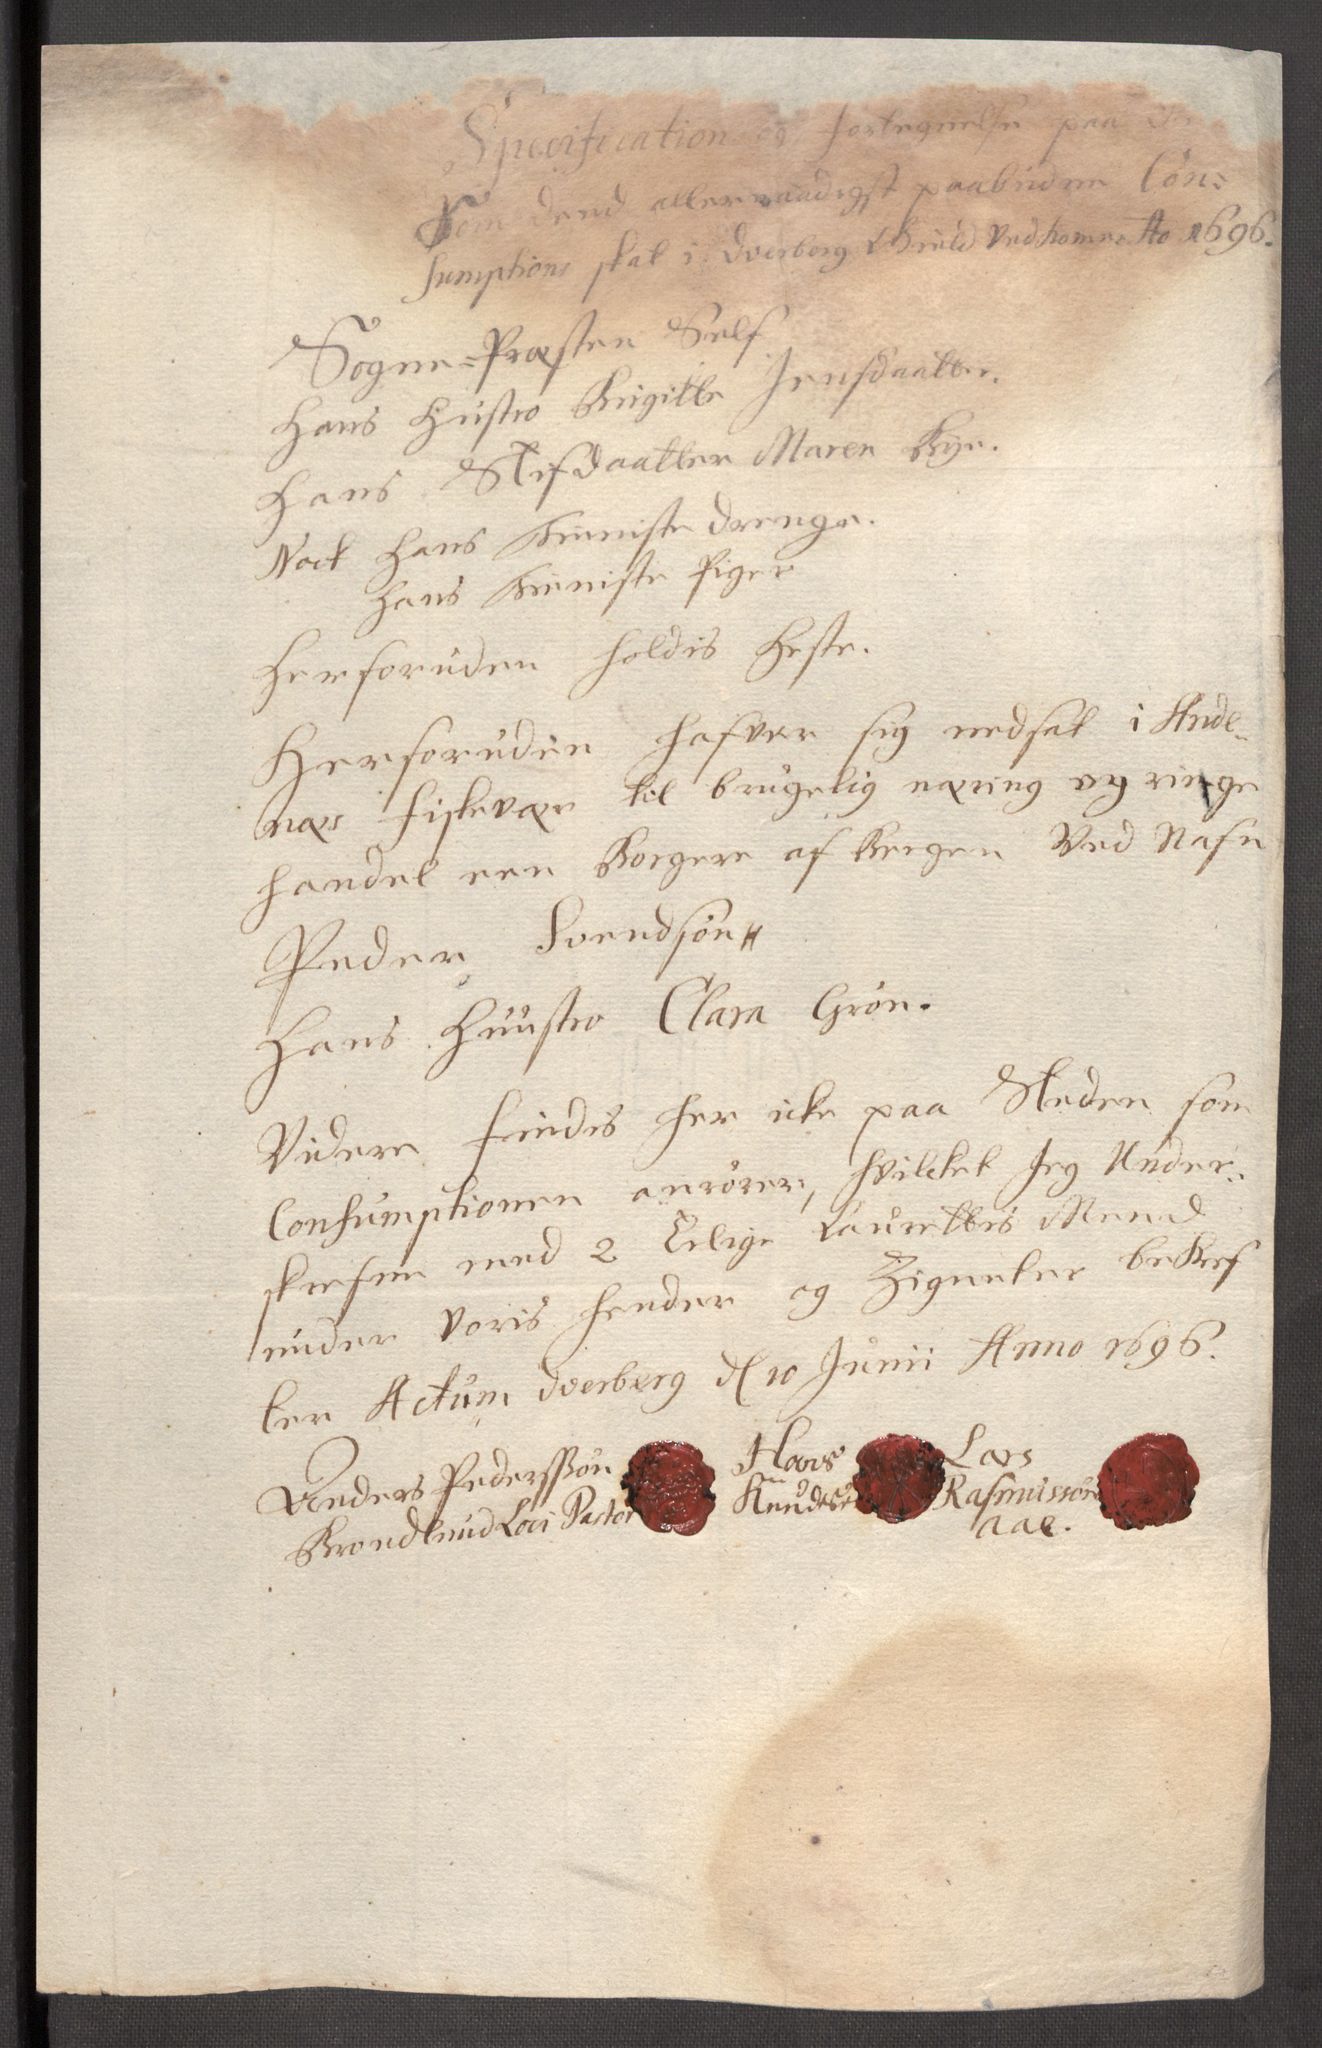 Specification og fortegnelse paa de
Som dend allernaadigst paabudne Con:
sumptions skat i Dverberg Gield Vedkommer Ao 1696.
Sogne-Præsten Self
Hans Hustro Birgitte Jensdaatter.
Hans Stifdaatter Maren Bye.
Nock Hans tienniste drenge.
Hans tienniste Piger
Herforuden holdis heste.
Herforuden hafver sig nedsat i Andel-
næs fiskevær til brugelig næring og ringe
handel een Borgere af Bergen Ved Nafn
Peder Svendsön
Hans Huustro Clara Grön.
Videre findis her icke paa Steden som
Consumptionen anrörer, hvilcket Jeg Under-
skrefne med 2 Eelige Laurettis Mend
under voris hender og Zigneter bekref
ter Actum Dverberg d 10 Junii Anno 1696.
Anders Pedersßön Hans Lars
Brondlund Loci Pastor Knudsen Rasmussön
Aae.